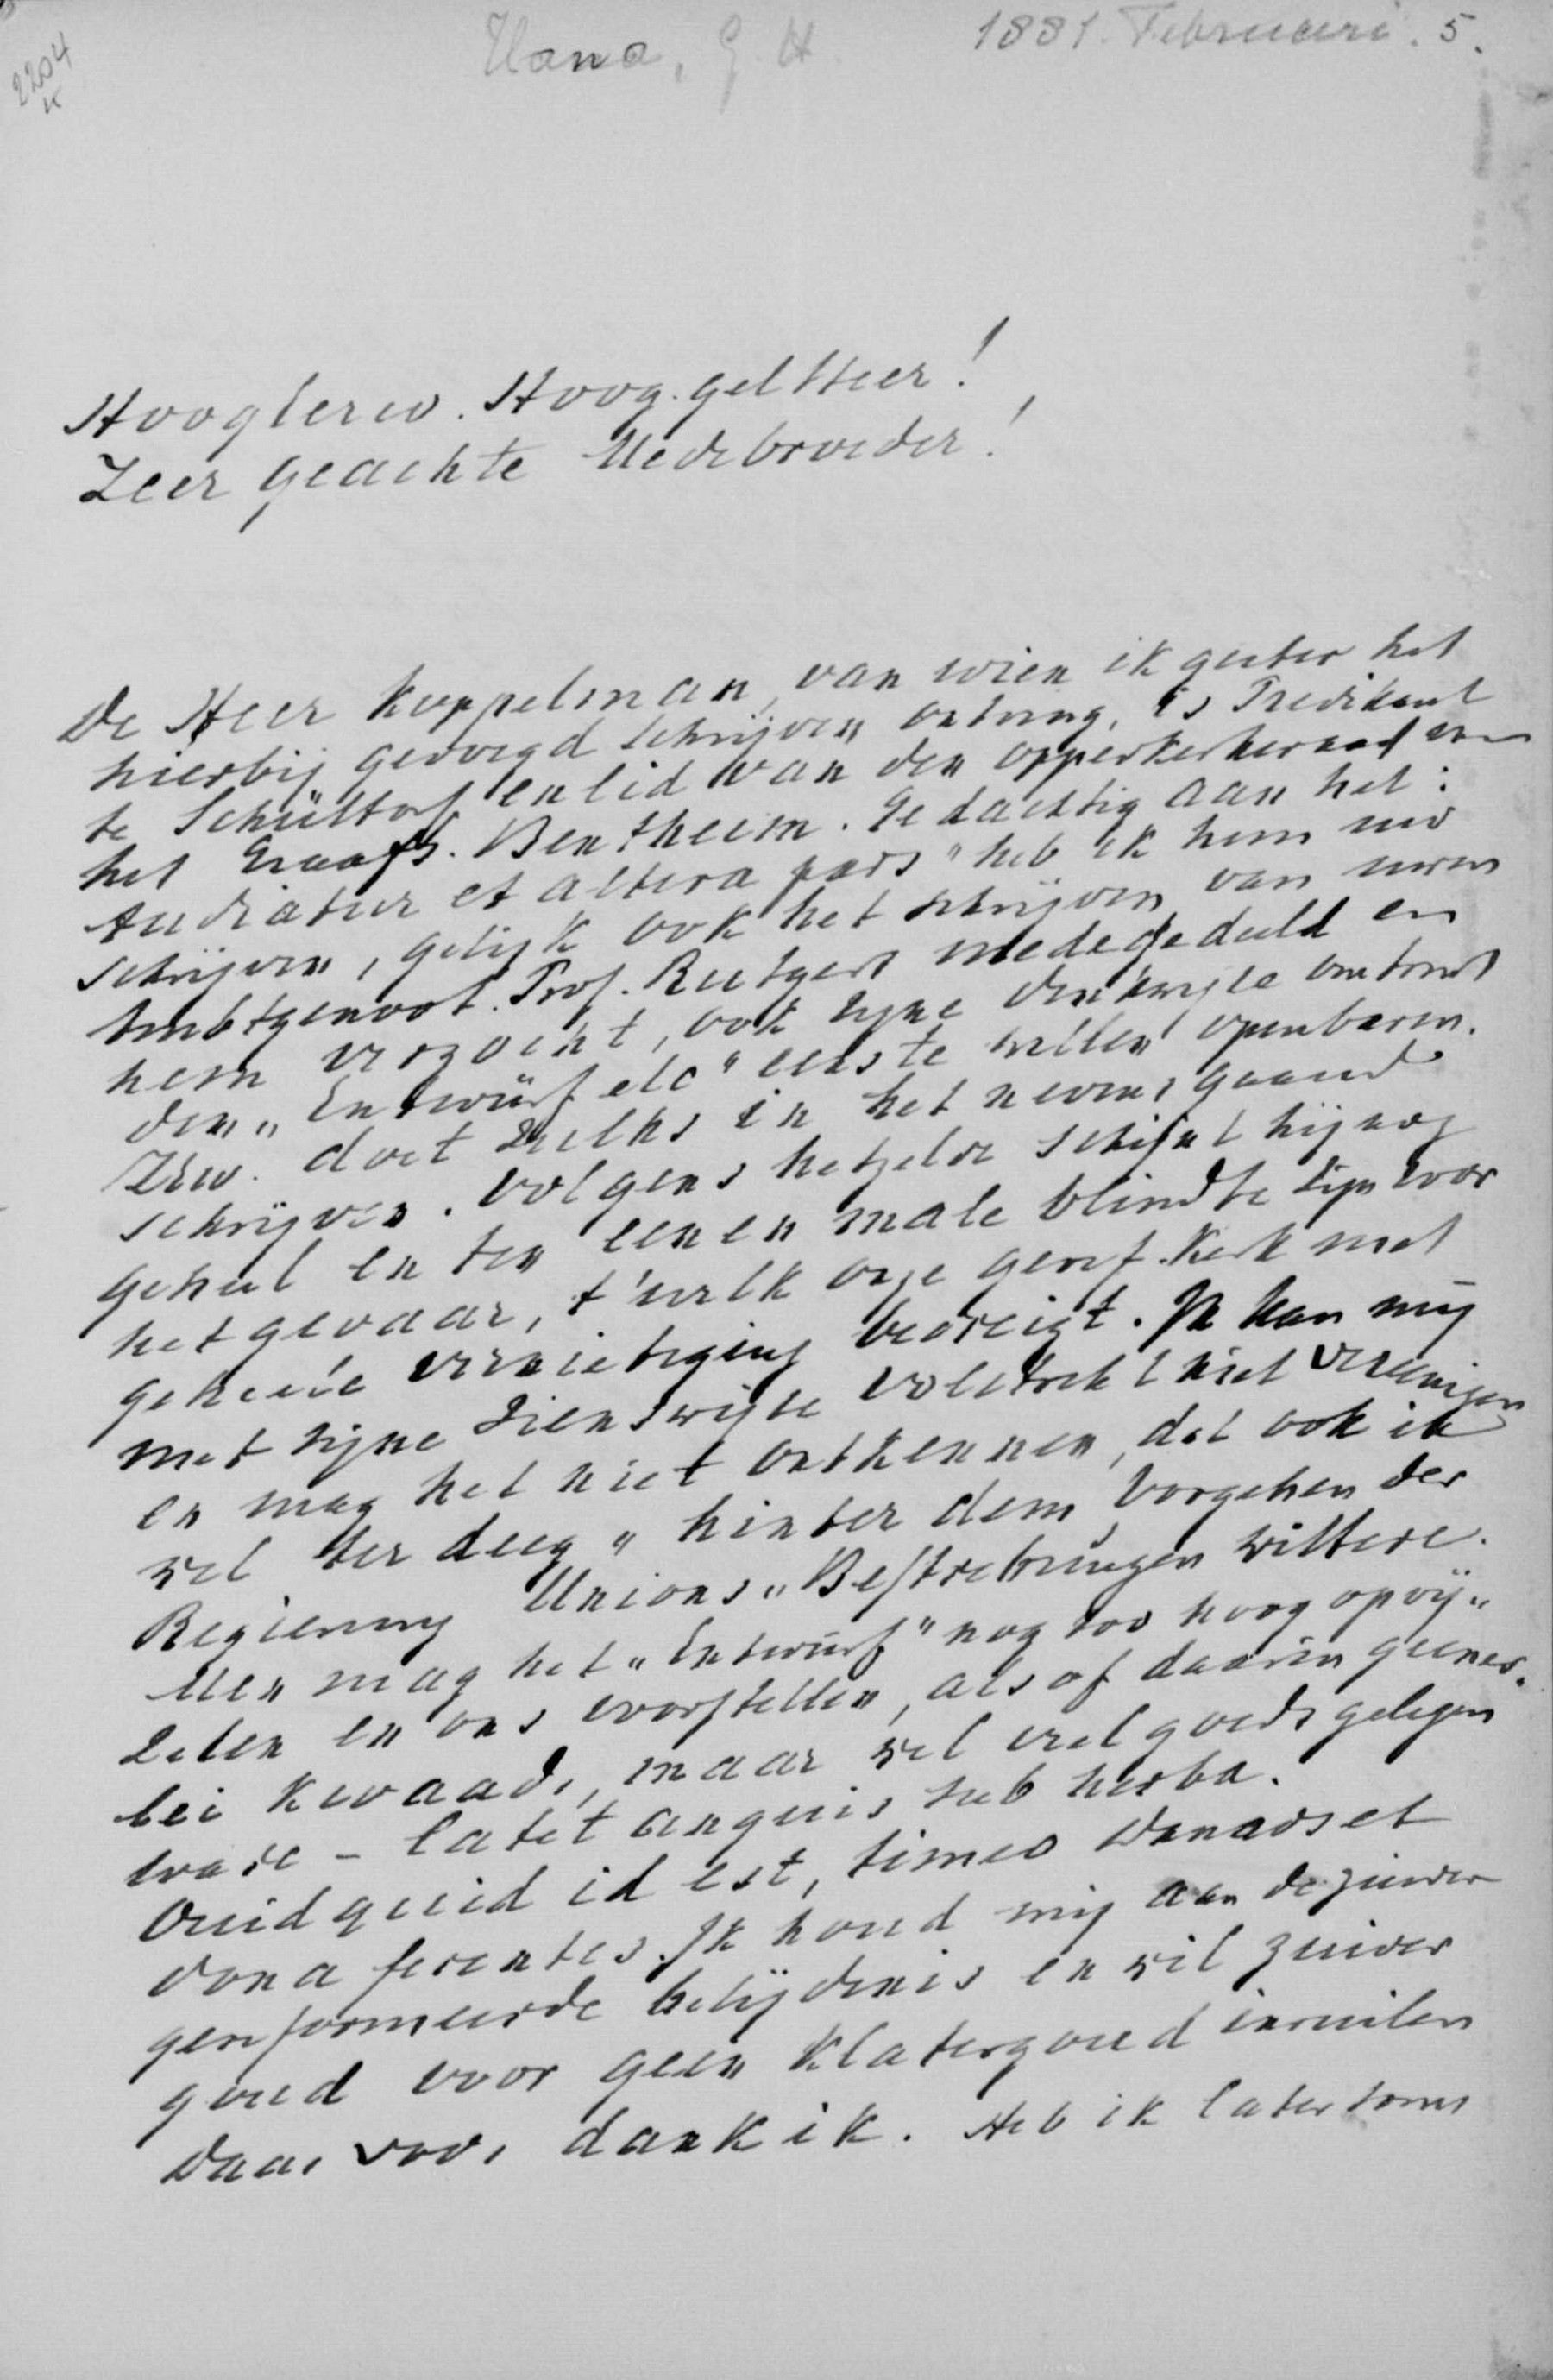 2204
K
1881. Februari. 5.
Hoogleerw. Hoog. gel Heer!
Zeer geachte Medebroeder!
De Heer Koppelman, van wien ik gister het
hierbij gevoegd schrijven ontving, is Predikant
te Schüttorf en lid van den opperkerkeraad van
het Graafs. Bentheim. Gedachtig aan het:
Audiatur et altera pars" heb ik hem uw
schrijven, gelijk ook het schrijven van uwen
Ambtgenoot. Prof. Rutgers medegedeeld en
hem verzocht, ook zijne denkwijze omtrent
den " Entwürf etc" eens te willen openbaren.
ZEw. doet zulks in het nevensgaand
schrijven. Volgens hetzelve schijnt hij nog
geheel en ten eenen male blind te zijn voor
het gevaar, t'welk onze geref. Kerk met
geheele vernietiging bedreigt. Ik kan mij
met zijne zienswijze volstrekt niet vereenigen
en mag het niet ontkennen, dat ook ik
wel ter deeg " hinter dem Vorgehen der
Regierung Unions" Bestrebungen wittere.
Men mag het " Entwürf" nog zoo hoog opvij"
zelen en ons voorstellen, als of daarin geener"
lei kwaads, maar wel veel goeds gelegen
ware - latet anguis sub herba.
Quidquid id est, timeo Danaos et
dona ferentes. Ik houd mij aan de zuivere
gereformeerde belijdenis en wil zuiver
goud voor geen klatergoud inruilen
Daar voor dank ik. Heb ik later soms